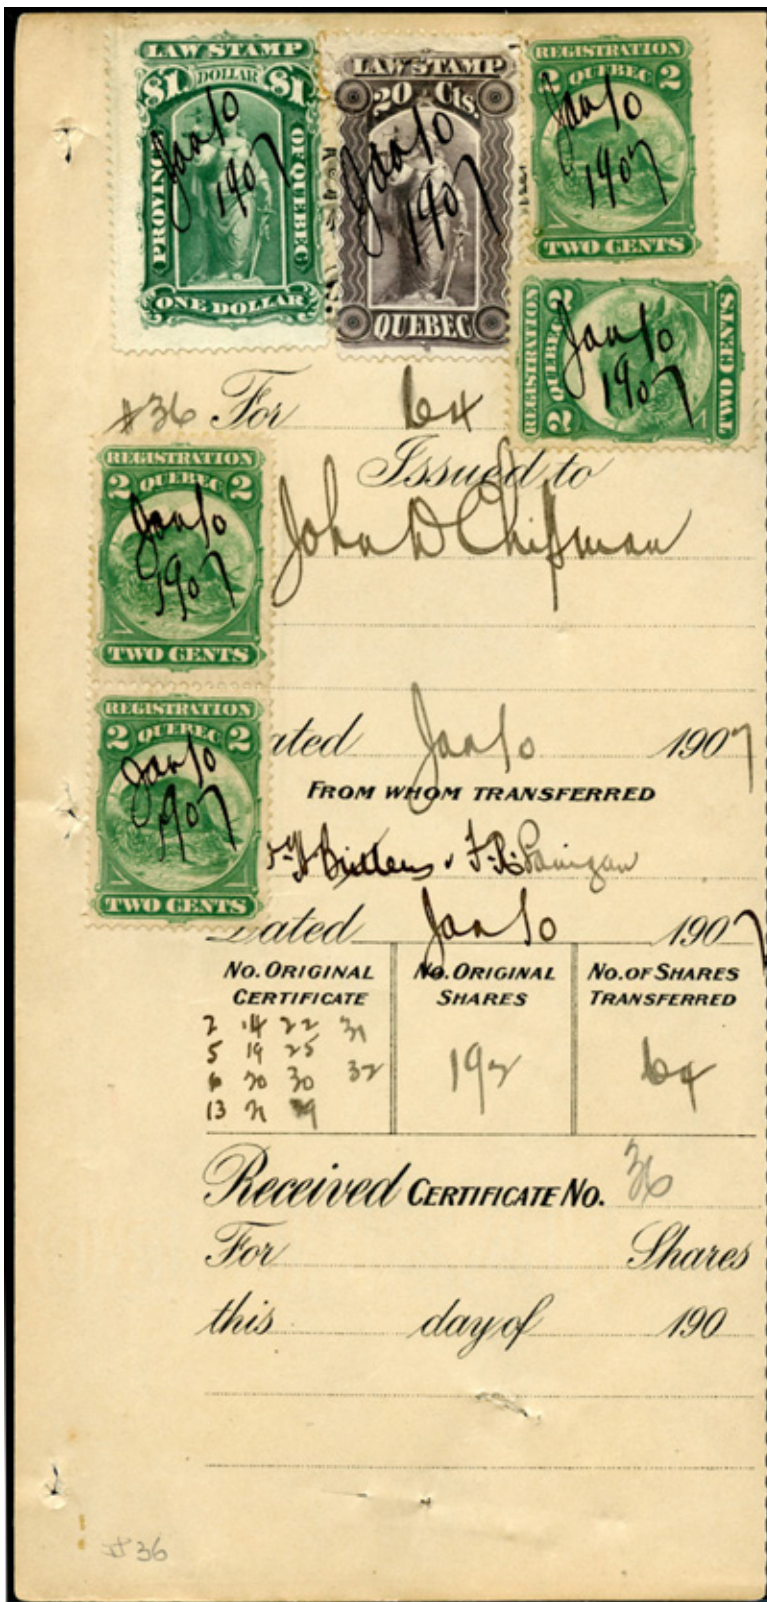 LAW STAMP
$1 DOLLAR $1
PROVINCE OF QUEBEC
ONE DOLLAR
Jan 10
1907
LAW STAMP
20 Cts.
QUEBEC
Jan 10
1907
REGISTRATION
2 QUEBEC 2
TWO CENTS
Jan 10
1907
REGISTRATION
2 QUEBEC 2
TWO CENTS
Jan 10
1907
#36 For 64
Issued to
John D Chipman
REGISTRATION
2 QUEBEC 2
TWO CENTS
Jan 10
1907
REGISTRATION
2 QUEBEC 2
TWO CENTS
Jan 10
1907
ated Jan 10 1907
FROM WHOM TRANSFERRED
F.R.
Dated Jan 10 1907
NO. ORIGINAL CERTIFICATE
NO. ORIGINAL SHARES
NO. OF SHARES TRANSFERRED
2 14 22 31
5 19 25
6 20 30 32
13 21
192
64
Received CERTIFICATE NO. 36
For Shares
this day of 190
#36